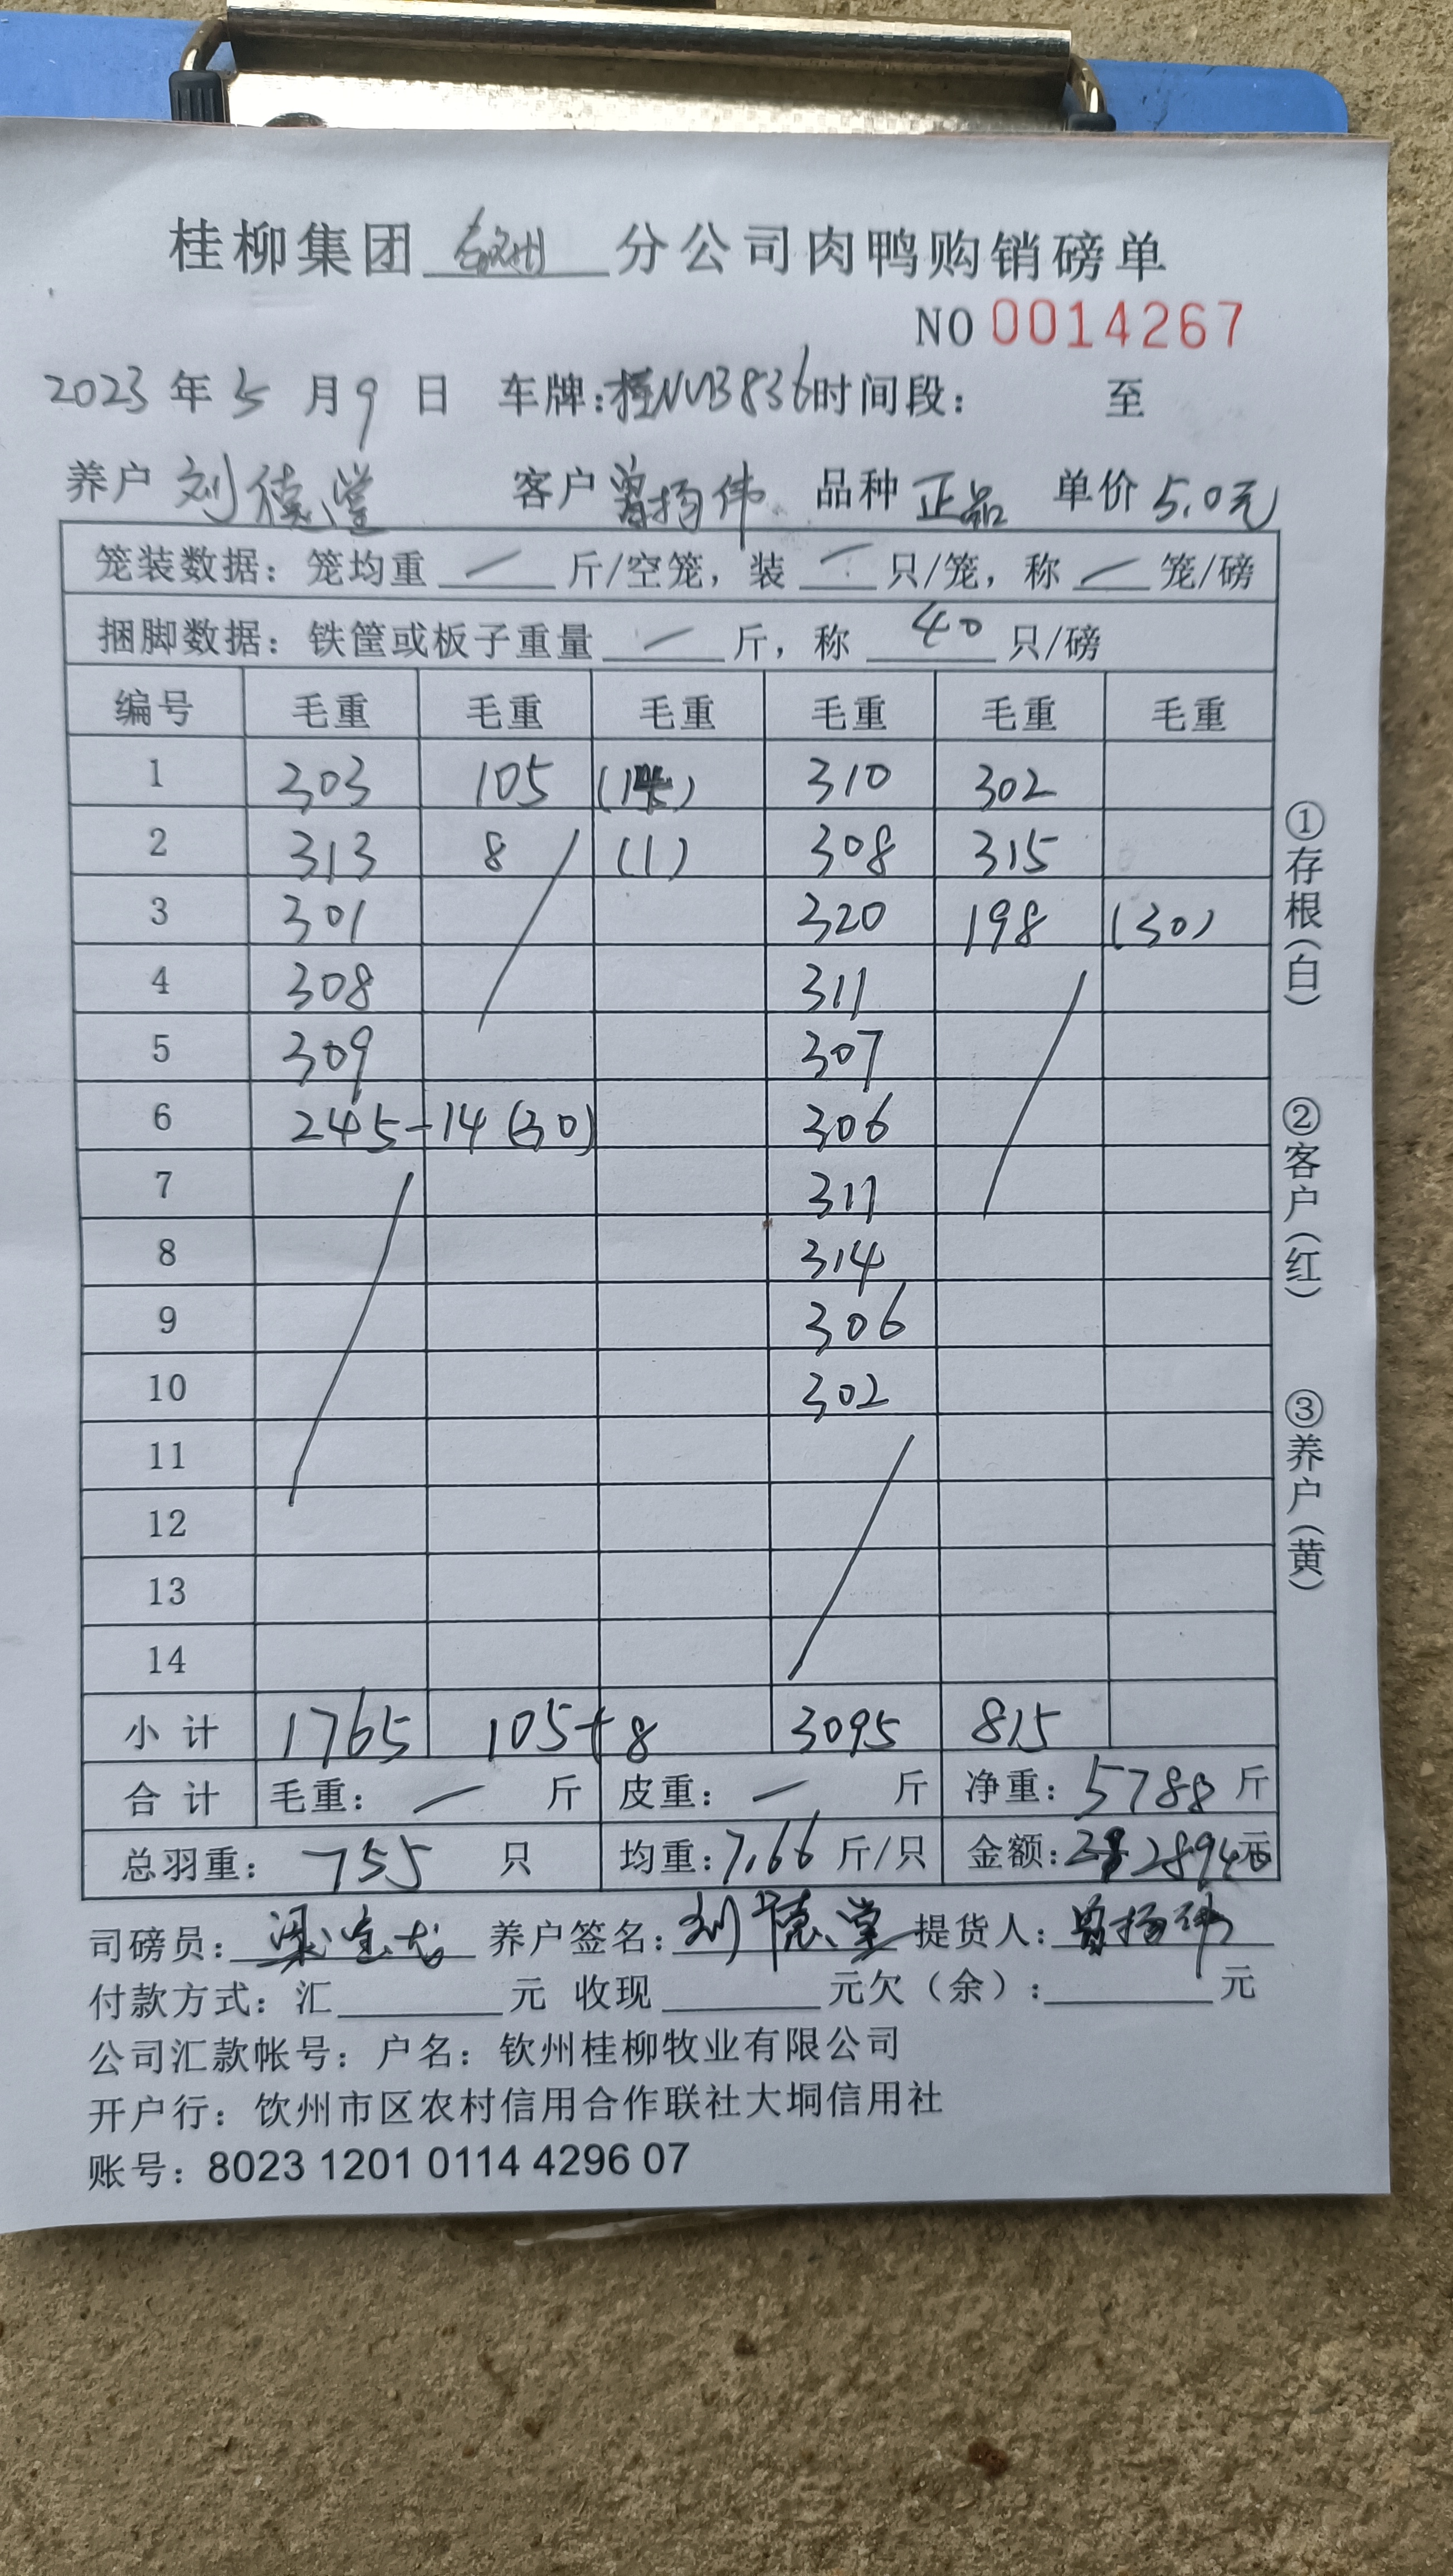 桂柳集团 钦州 分公司肉鸭购销磅单
NO 0014267
2023 年 5 月 9 日 车牌:桂NVB836 时间段: 至
养户 刘德堂 客户 曾扬伟 品种 正品 单价 5.0元
笼装数据: 笼均重 — 斤/空笼, 装 — 只/笼, 称 — 笼/磅
捆脚数据: 铁筐或板子重量 — 斤, 称 40 只/磅
编号 毛重 毛重 毛重 毛重 毛重 毛重
1 303 105 310 302
2 313 8 (1) 308 315
3 301 320 198 (30)
4 308 311
5 309 307
6 245-14 (30) 306
7 311
8 314
9 306
10 302
11
12
13
14
小计 1765 105+8 3095 815
合计 毛重: — 斤 皮重: — 斤 净重: 5788 斤
总羽重: 755 只 均重: 7.66 斤/只 金额: 2894元
司磅员: 养户签名: 刘德堂 提货人: 曾扬伟
付款方式: 汇 元 收现 元欠(余): 元
公司汇款帐号: 户名: 钦州桂柳牧业有限公司
开户行: 饮州市区农村信用合作联社大垌信用社
账号: 8023 1201 0114 4296 07
①存根(白)
②客户(红)
③养户(黄)